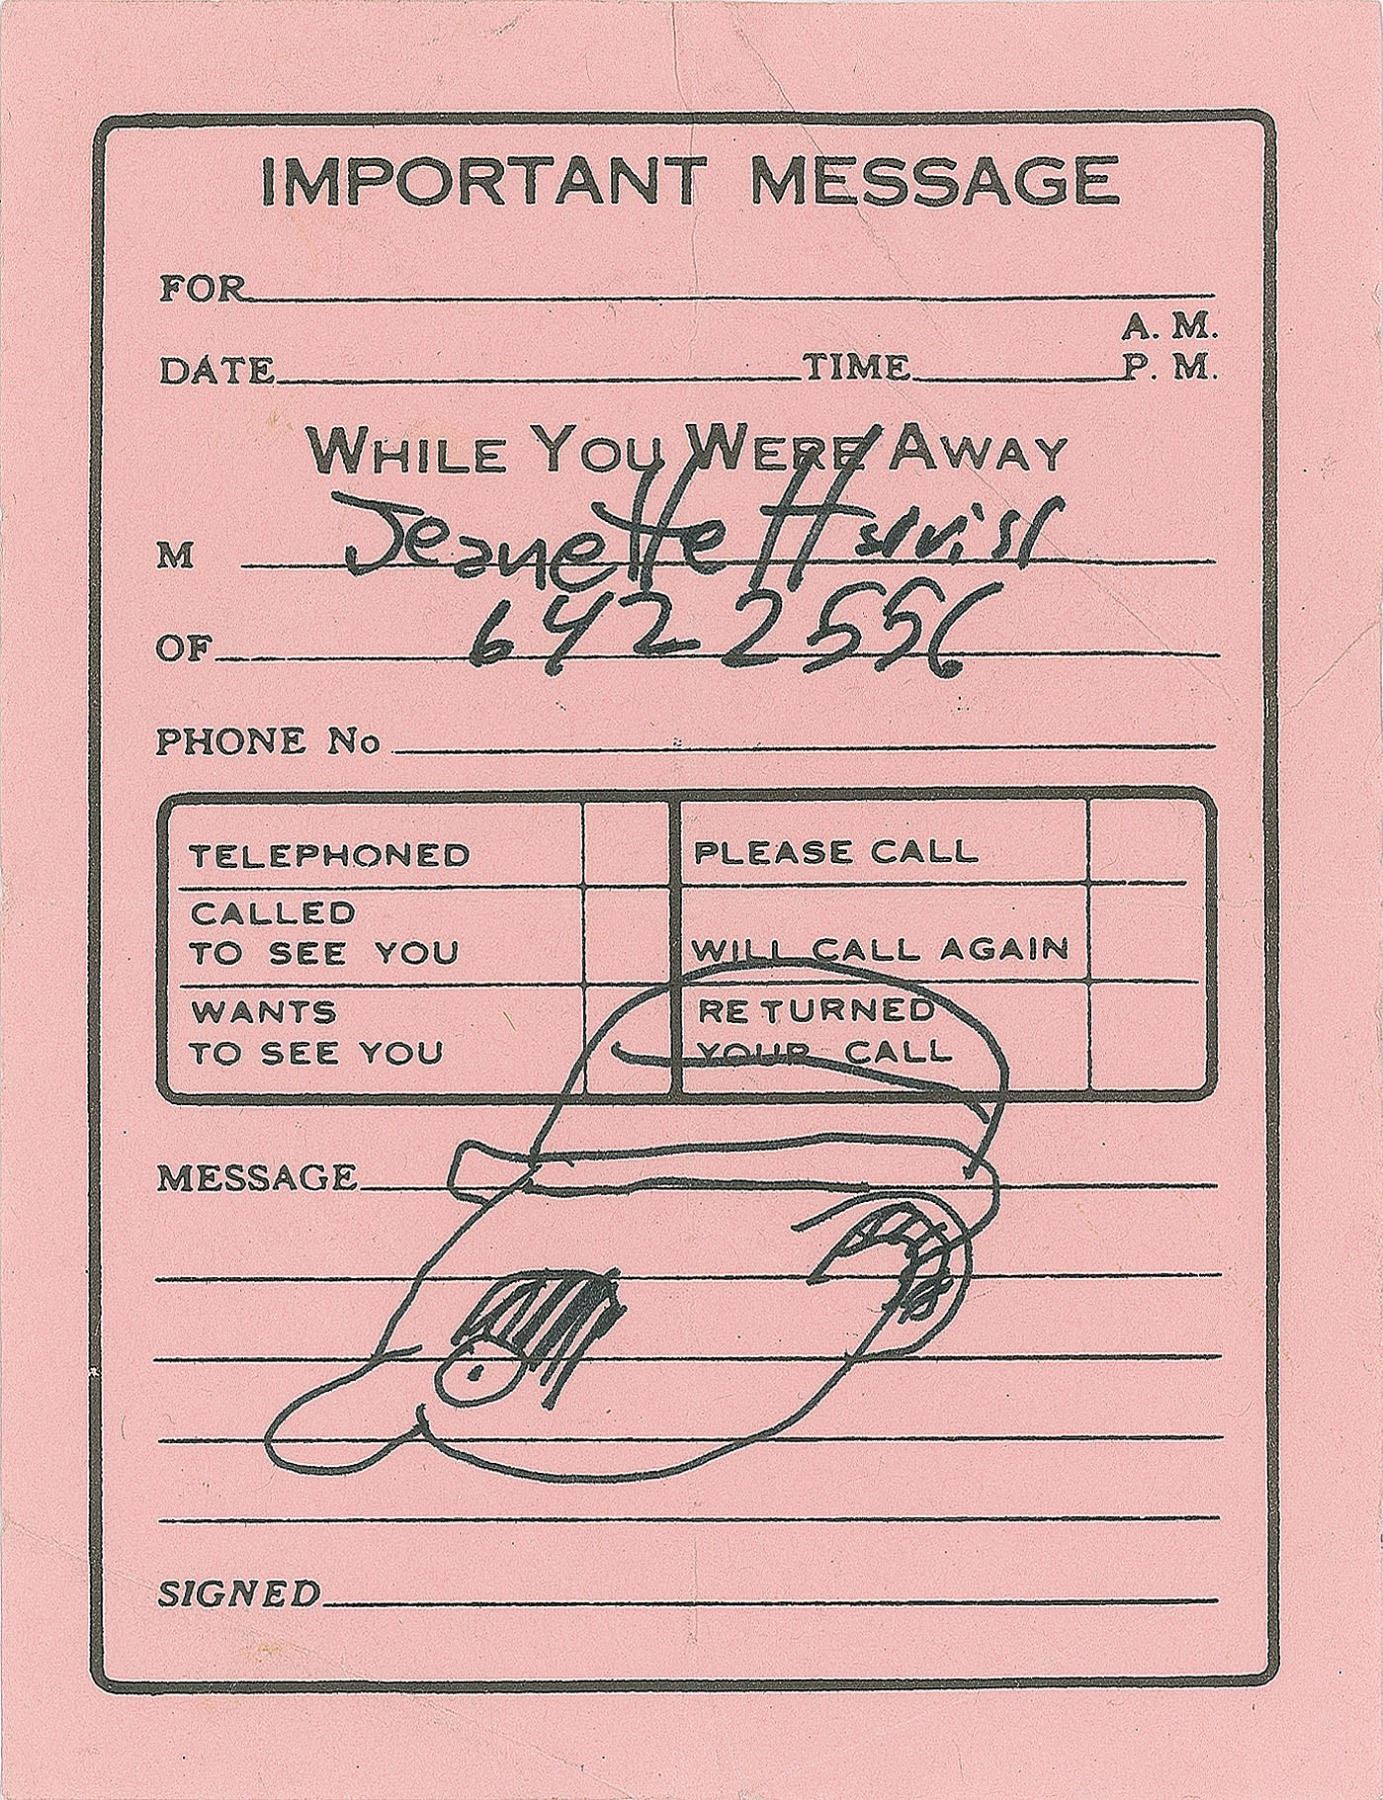 IMPORTANT MESSAGE
FOR
A. M.
DATE TIME P. M.
WHILE YOU WERE AWAY
M Jeanette
OF 642 2556
PHONE No
TELEPHONED PLEASE CALL
CALLED
TO SEE YOU WILL CALL AGAIN
WANTS RETURNED
TO SEE YOU YOUR CALL
MESSAGE
SIGNED